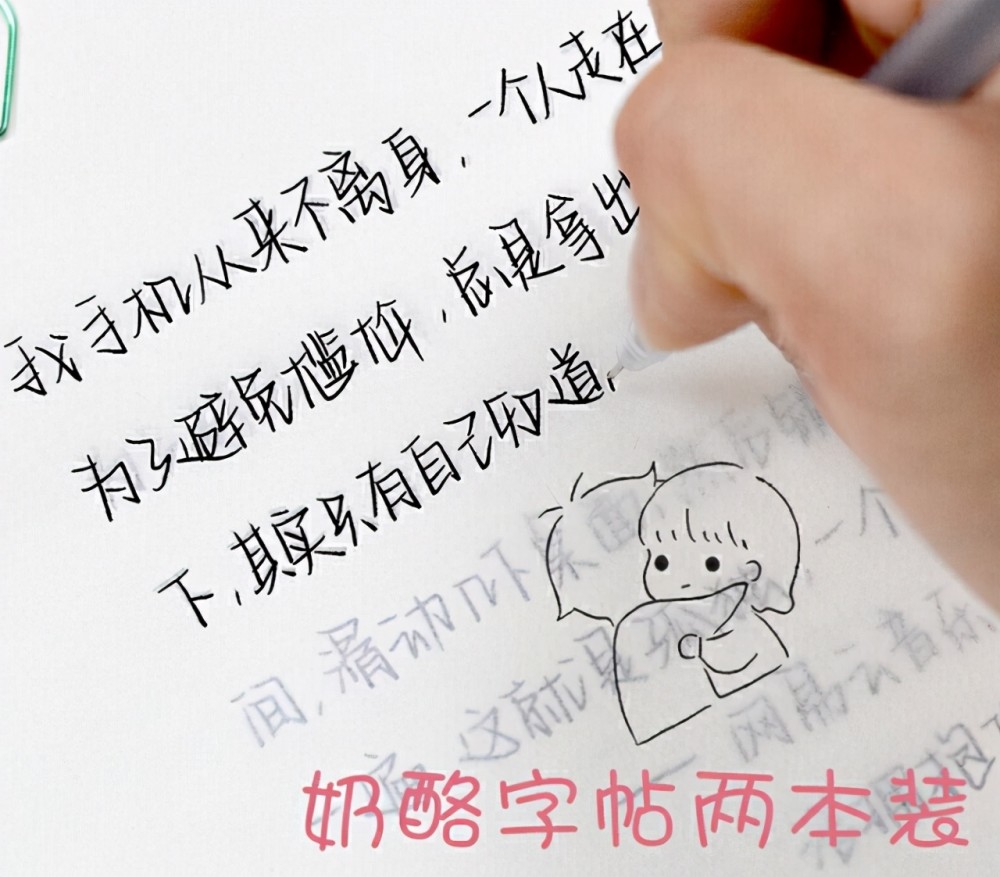 我手机从来不离身，一个人走在
为了避免尴尬，总是拿出
下，其实只有自己知道，
间，滑动几下桌面，然后锁
一遍，这就是孤独，一个
——网易云音乐
奶酪字帖两本装